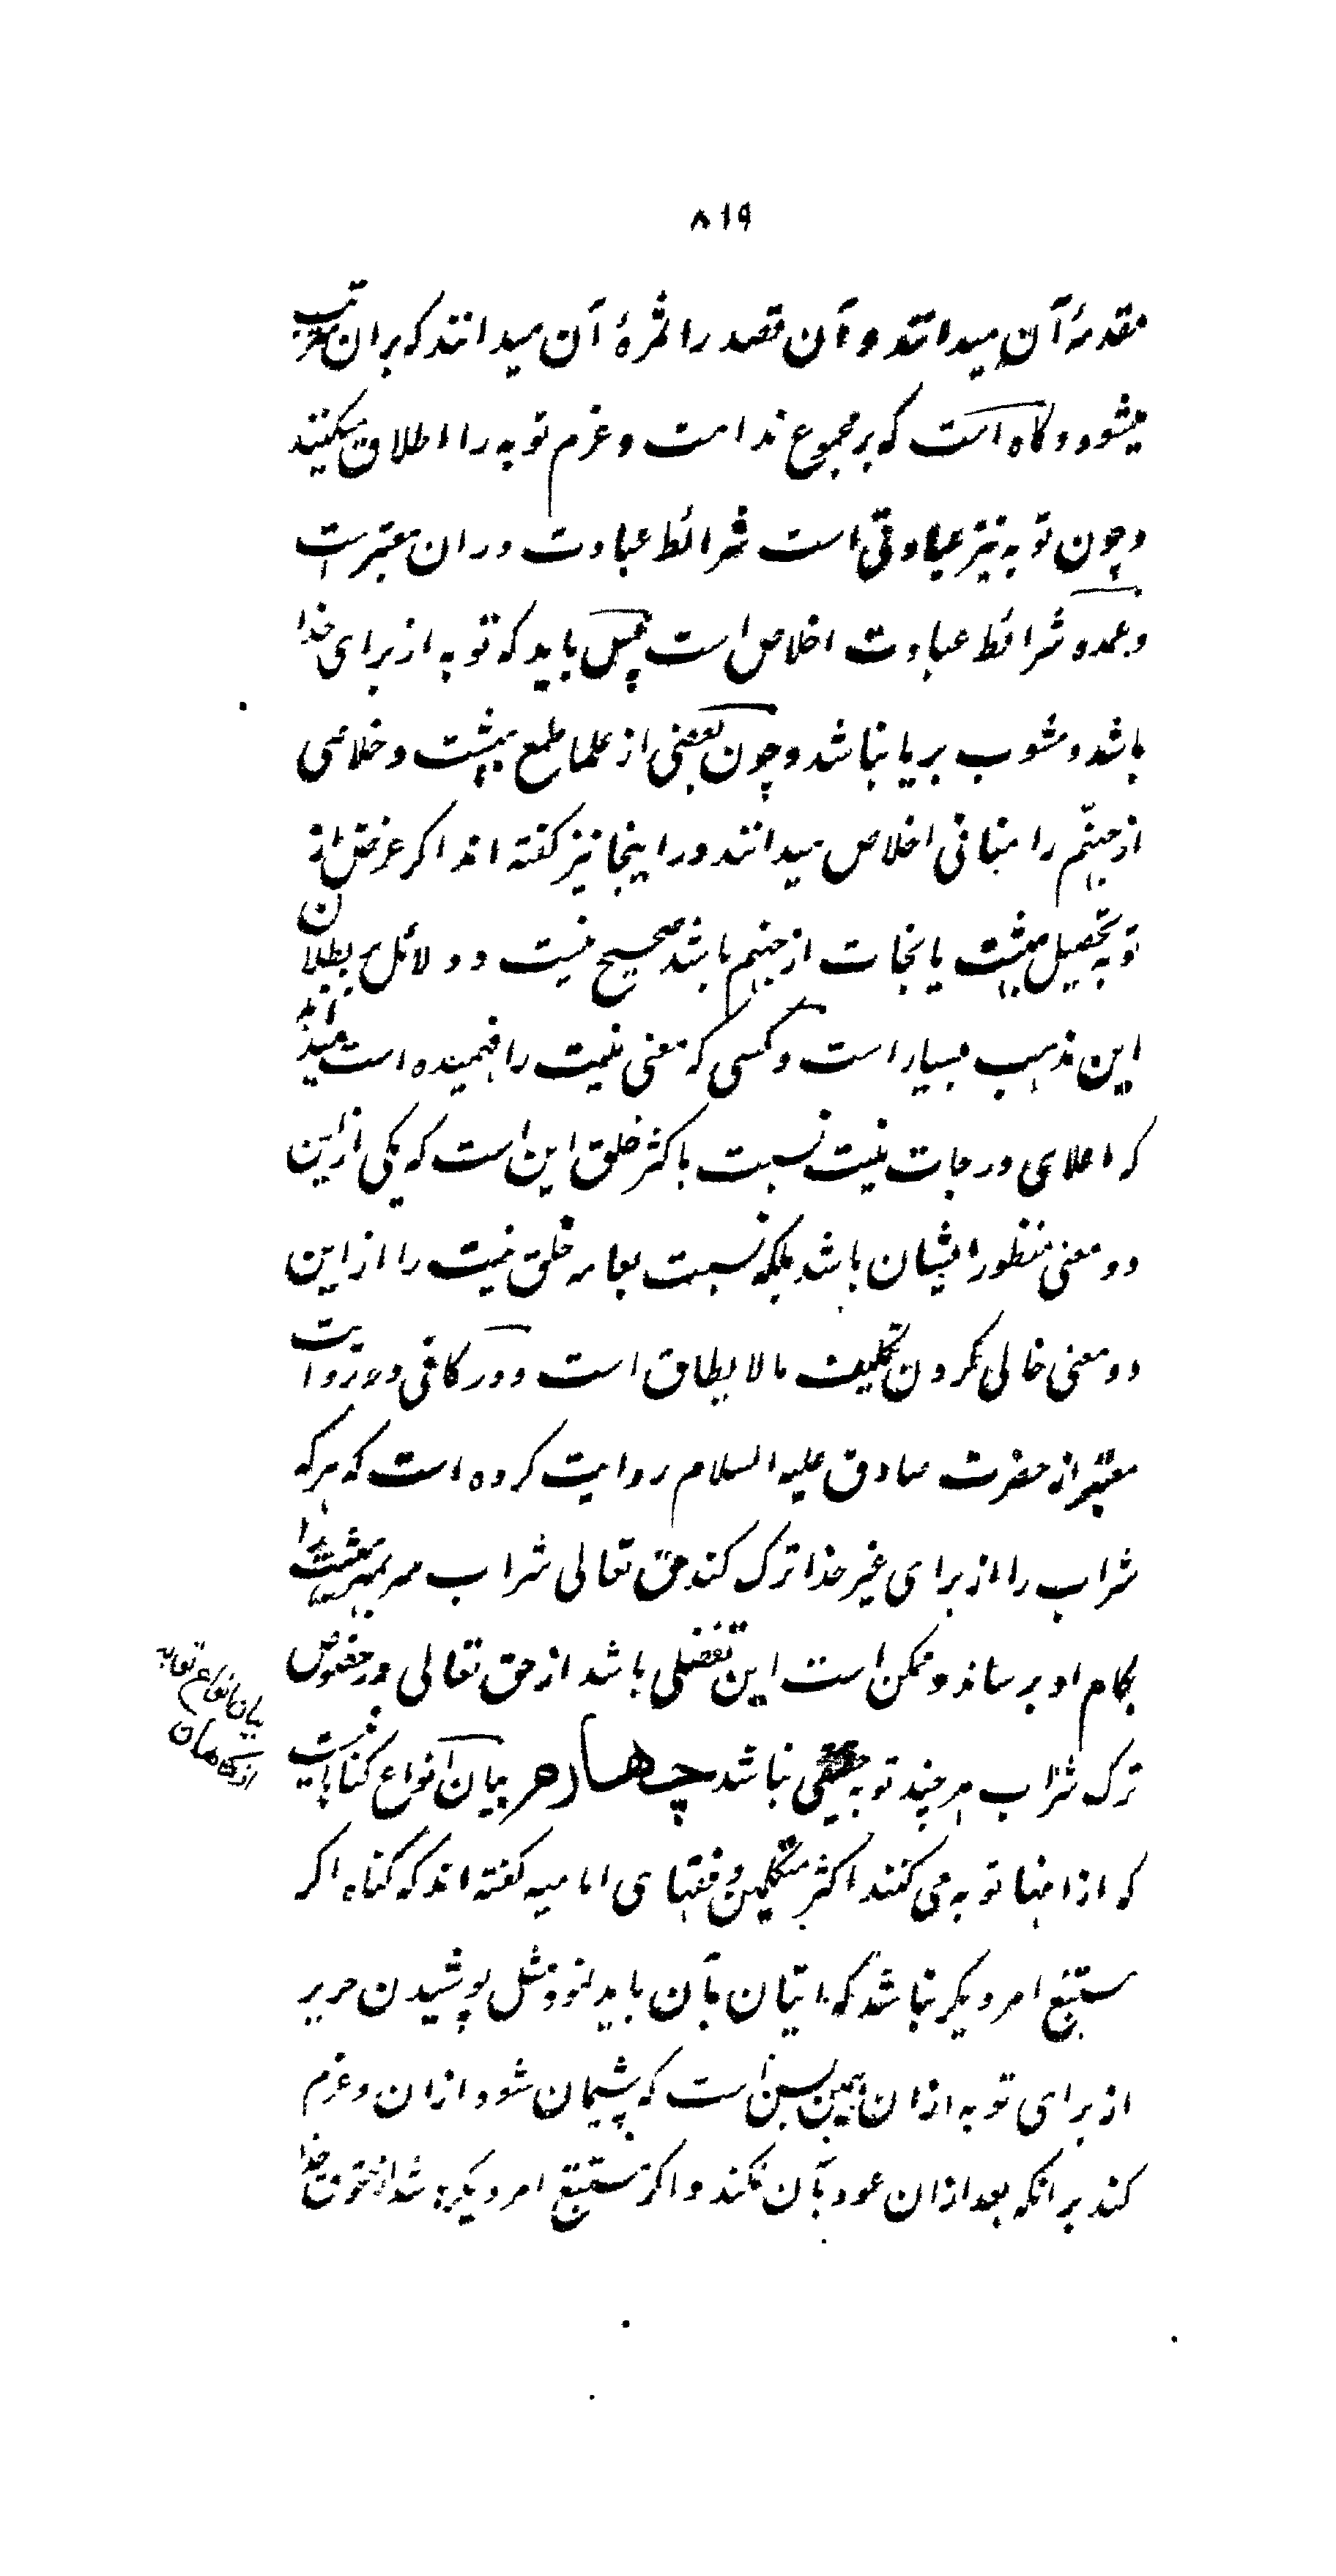 ٨١٩
مقدمهٔ آن میدانند و آن قصد را ثمرهٔ آن میدانند که بران مترتب
میشود و کاه است که بر مجموع ندامت و عزم توبه را اطلاق میکنند
و چون توبه نیز عبادتی است شرائط عبادت دران معتبر است
و عمده شرائط عبادت اخلاص است پس باید که توبه از برای خدا
باشد و مشوب بریا نباشد و چون بعضی از علما طمع بهشت و خلاصی
از جهنّم را منافی اخلاص میدانند در اینجا نیز کفته اند اکر غرض از
توبه تحصیل بهشت یا نجات از جهنم باشد صحیح نیست و دلائل بر بطلان
این مذهب بسیار است و کسی که معنی نیت را فهمیده است میداند
که اعلای درجات نیت نسبت باکثر خلق این است که یکی از این
دو معنی منظور ایشان باشد بلکه نسبت بعامه خلق نیت را از این
دو معنی خالی کردن تکلیف مالایطاق است و در کافی در روایت
معتبر از حضرت صادق علیه السلام روایت کرده است که هر که
شراب را از برای غیر خدا ترک کند حق تعالی شراب سر بمهر بهشت را
بکام او برساند و ممکن است این تفضلی باشد از حق تعالی در خصوص
ترک شراب هر چند توبه حقیقی نباشد چهارم بیان انواع کناهانیست
که از اینها توبه می کنند اکثر متکلمین و فقهای امامیه کفته اند که کناه اکر
مستتبع امر دیکر نباشد که اتیان بآن باید نمود مثل پوشیدن حریر
از برای توبه ازان همین بس است که پشیمان شود ازان و عزم
کند بر انکه بعد ازان عود بآن نکند و اکر مستتبع امر دیکر باشد از حقوق خدا
بیان انواع توبه
از کناهان